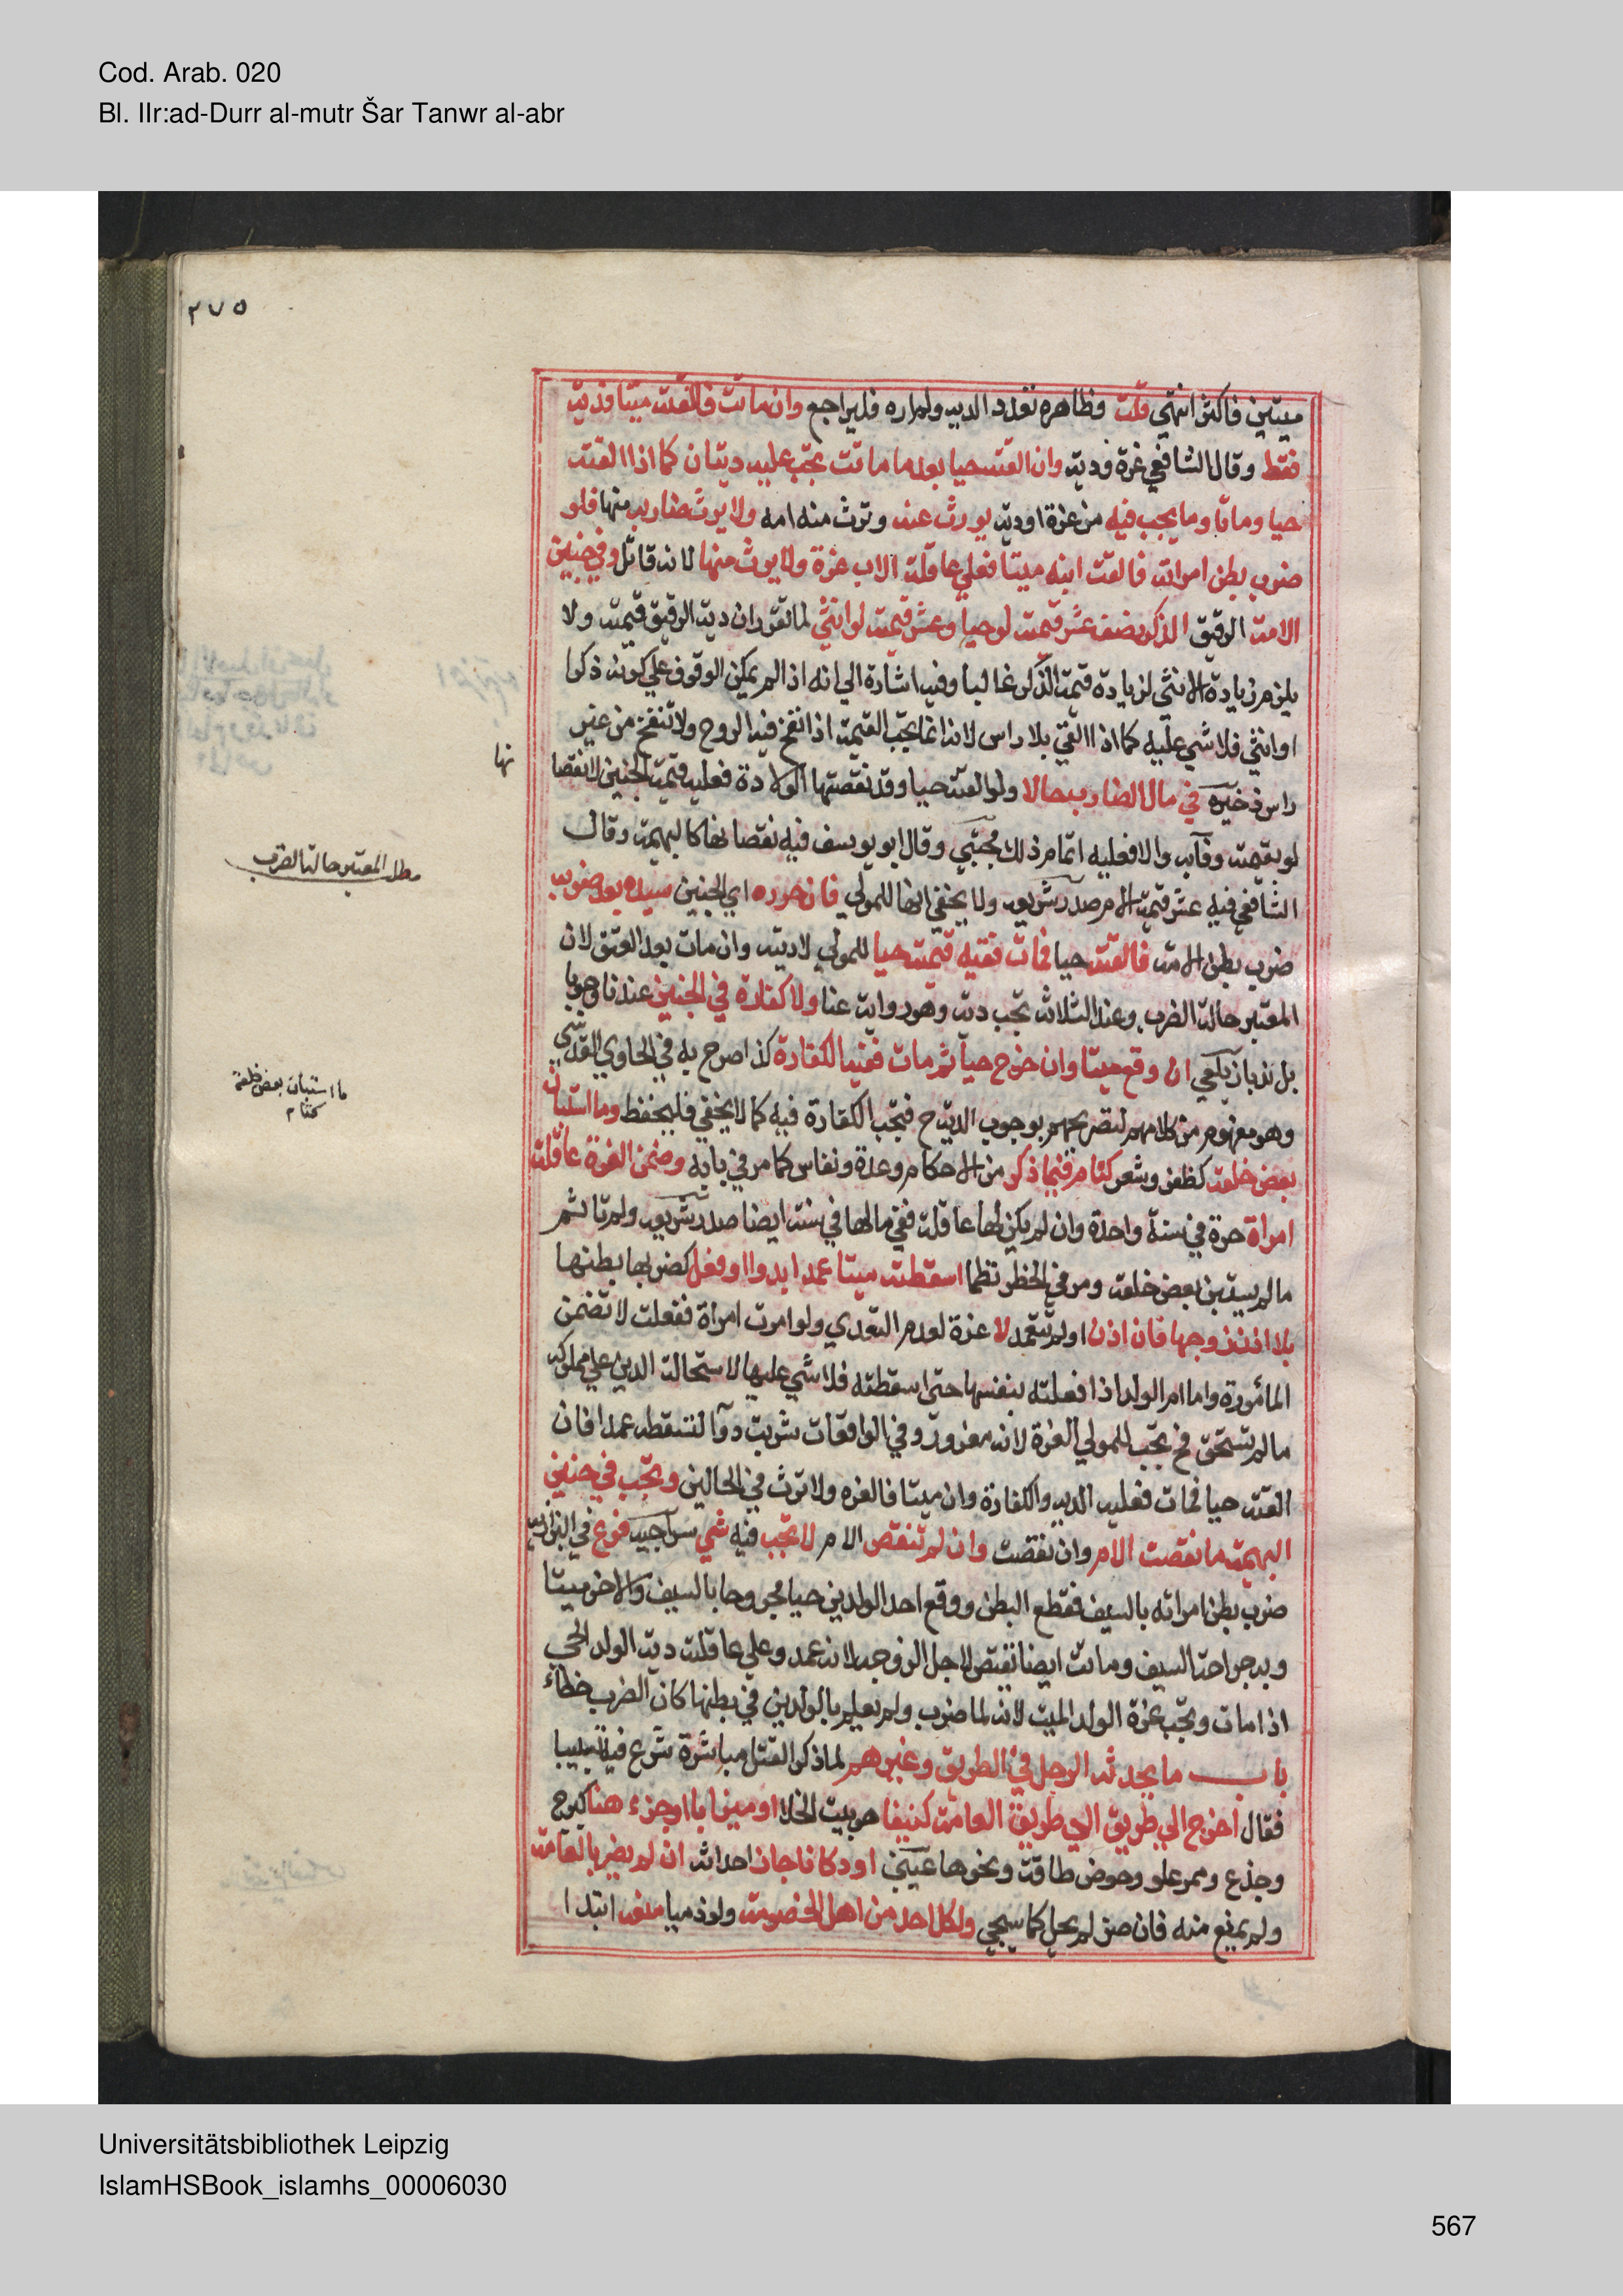 Cod. Arab. 020
Bl. IIr:ad-Durr al-mutr Šar Tanwr al-abr
٢٧٥
ميتين فاكثر انتهي قلت وظاهره تعدد الديه ولم اره فليراجع وان ماتت فالقت ميتا فدية
فقط وقال الشافعي غرة ودية وان القته حيا بعد ما ماتت يجب عليه ديتان كما اذا القته
حيا وماتا وما يجب فيه من غرة او دية يورث عنه وترث منه امه ولا يرث ضاربه منها فلو
ضرب بطن امراته فالقت ابنه ميتا فعلي عاقلة الاب غرة ولا يرث منها لانه قاتل وفي جنين
الامة الرقيق الذكر نصف عشر قيمته لو حيا وعشر قيمته لو انثي لما تقرر ان دية الرقيق قيمته ولا
يلزم زيادة الانثي لزيادة قيمة الذكر غالبا وفيه اشارة الي انه اذا لم يمكن الوقوف علي كونه ذكرا
او انثي فلا شي عليه كما اذا القي بلا راس لانه انما يجب القيمة اذا نفخ فيه الروح ولا تنفخ من غير
راس ذخيره في مال الضارب حالا ولو القته حيا وقد نقصتها الولادة فعليه قيمة الجنين لا نقصا
نها
لو بقيمته وفآء به والا فعليه اتمام ذلك مجتبي وقال ابو يوسف فيه نقصانها كالبهيمة وقال
مطل المعتبر حالة الضرب
الشافعي فيه عشر قيمة الام صدر شريعه ولا يخفي انها للمولي فان حرره اي الجنين سيده بعد ضرب
ضرب بطن الامة فالقته حيا فمات ففيه قيمته حيا للمولي لا ديته وان مات بعد العتق لان
المعتبر حالة الضرب وعند الثلاثة تجب دية وهو رواية عنا ولا كفارة في الجنين عندنا وجوبا
بل ندبا زيلعي ان وقع ميتا وان خرج حيا ثم مات ففيه الكفارة كذا صرح به في الحاوي القدسي
ما استبان بعض خلقه
كتام
وهو مفهوم من كلامهم لتصريحهم بوجوب الدية ح فتجب الكفارة فيه كما لا يخفي فليحفظ وما استبان
بعض خلقه كظفر وشعر كتام فيما ذكر من الاحكام وعدة ونفاس كما مر في بابه وضمن الغرة عاقلة
امراة حرة في سنة واحدة وان لم يكن لها عاقلة ففي مالها في سنة ايضا صدر شريعه ولم تاثم
مالم يستبن بعض خلقه ومر في الحظر نظما اسقطته ميتا عمدا بدواء او فعل كضربها بطنها
بلا اذن زوجها فان اذن او لم تتعمد لا غرة لعدم التعدي ولو امرت امراة ففعلت لا تضمن
المأمورة واما ام الولد اذا فعلته بنفسها حتي اسقطته فلا شي عليها لاستحالة الدين علي مملوكه
مالم تستحق فح يجب للمولي الغرة لانه مغرور وفي الواقعات شربت دوآ لتسقطه عمدا فان
القته حيا فمات فعليه الديه والكفارة وان ميتا فالغره ولا ترث في الحالين ويجب في جنين
البهيمة ما نقصت الام وان نقصت وان لم تنقص الام لا يجب فيه شي سراجيه فرع في البزازيه
ضرب بطن امراته بالسيف فقطع البطن ووقع احد الولدين حيا مجروحا بالسيف والاخر ميتا
وبه جراحة السيف وماتت ايضا يقتص لاجل الزوجه لانه عمد وعلي عاقلته دية الولد الحي
اذا مات وتجب غرة الولد الميت لانه لما ضرب ولم يعلم بالولدين في بطنها كان الضرب خطاء
باب ما يحدثه الرجل في الطريق وغيره لما ذكر القتل مباشرة شرع فيه تسبيبا
فقال اخرج الي طريق العامة كنيفا هو بيت الخلا او ميزابا او جرصنا كبرج
وجذع وممر علو وحوض طاقة ونحوها عيني او دكانا جاز احداثه ان لم يضر بالعامة
ولم يمنع منه فان ضر لم يحل كما سيجي ولكل احد من اهل الخصومة ولو ذميا منعه ابتداء
Universitätsbibliothek Leipzig
IslamHSBook_islamhs_00006030
567